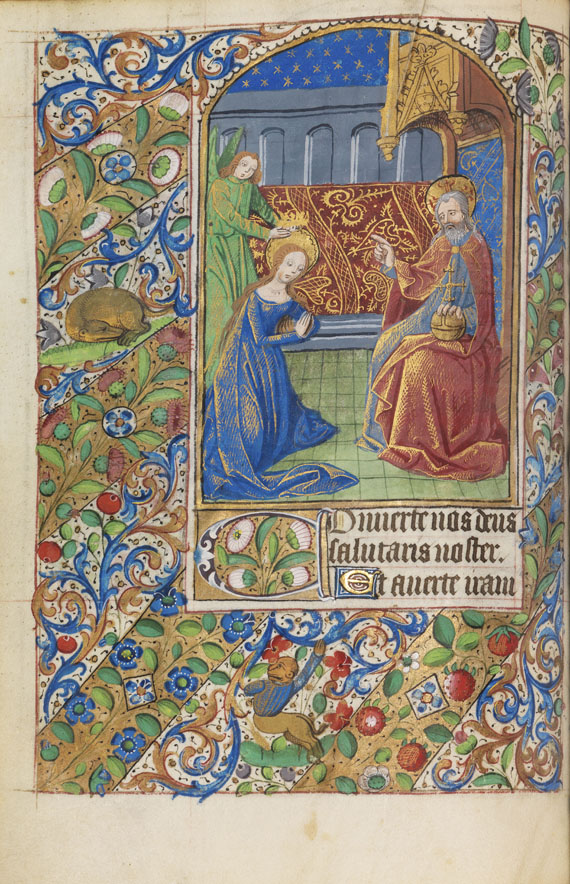 Onuerte nos deus
salutaris noster.
Et auerte iram